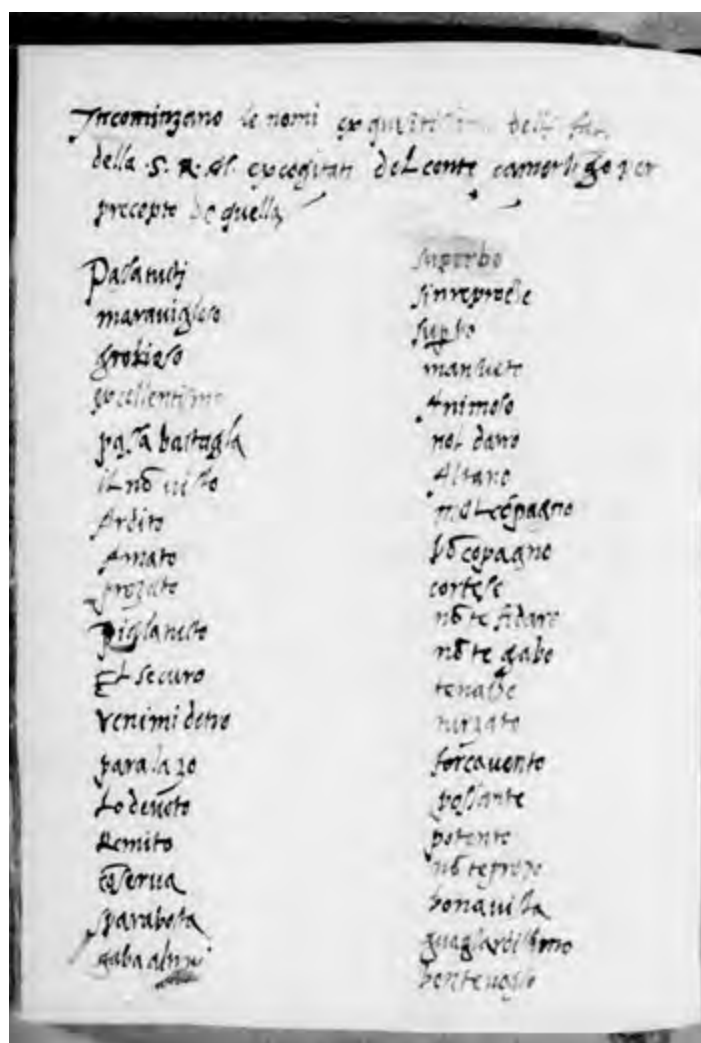 Incominzano le nomi exquisitissimi delli
della .S. R. M. excogitati del conte camorlingo per
precepto de quella
Passatucti
maraviglioso
grobioso
excellentissimo
passa battagla
il nō visto
Ardito
Amato
prezato
Piglatucto
El securo
Venimi detro
parala go
Lo devoto
Remito
parabosta
gaba altrui
superbo
sinreproche
supbo
mansueto
Animoso
nol daro
Altano
malcōpagno
bōcopagno
cortese
nō te fidare
nō te gabo
forcavento
possante
potente
bonavista
guaglardissimo
bentevoglo